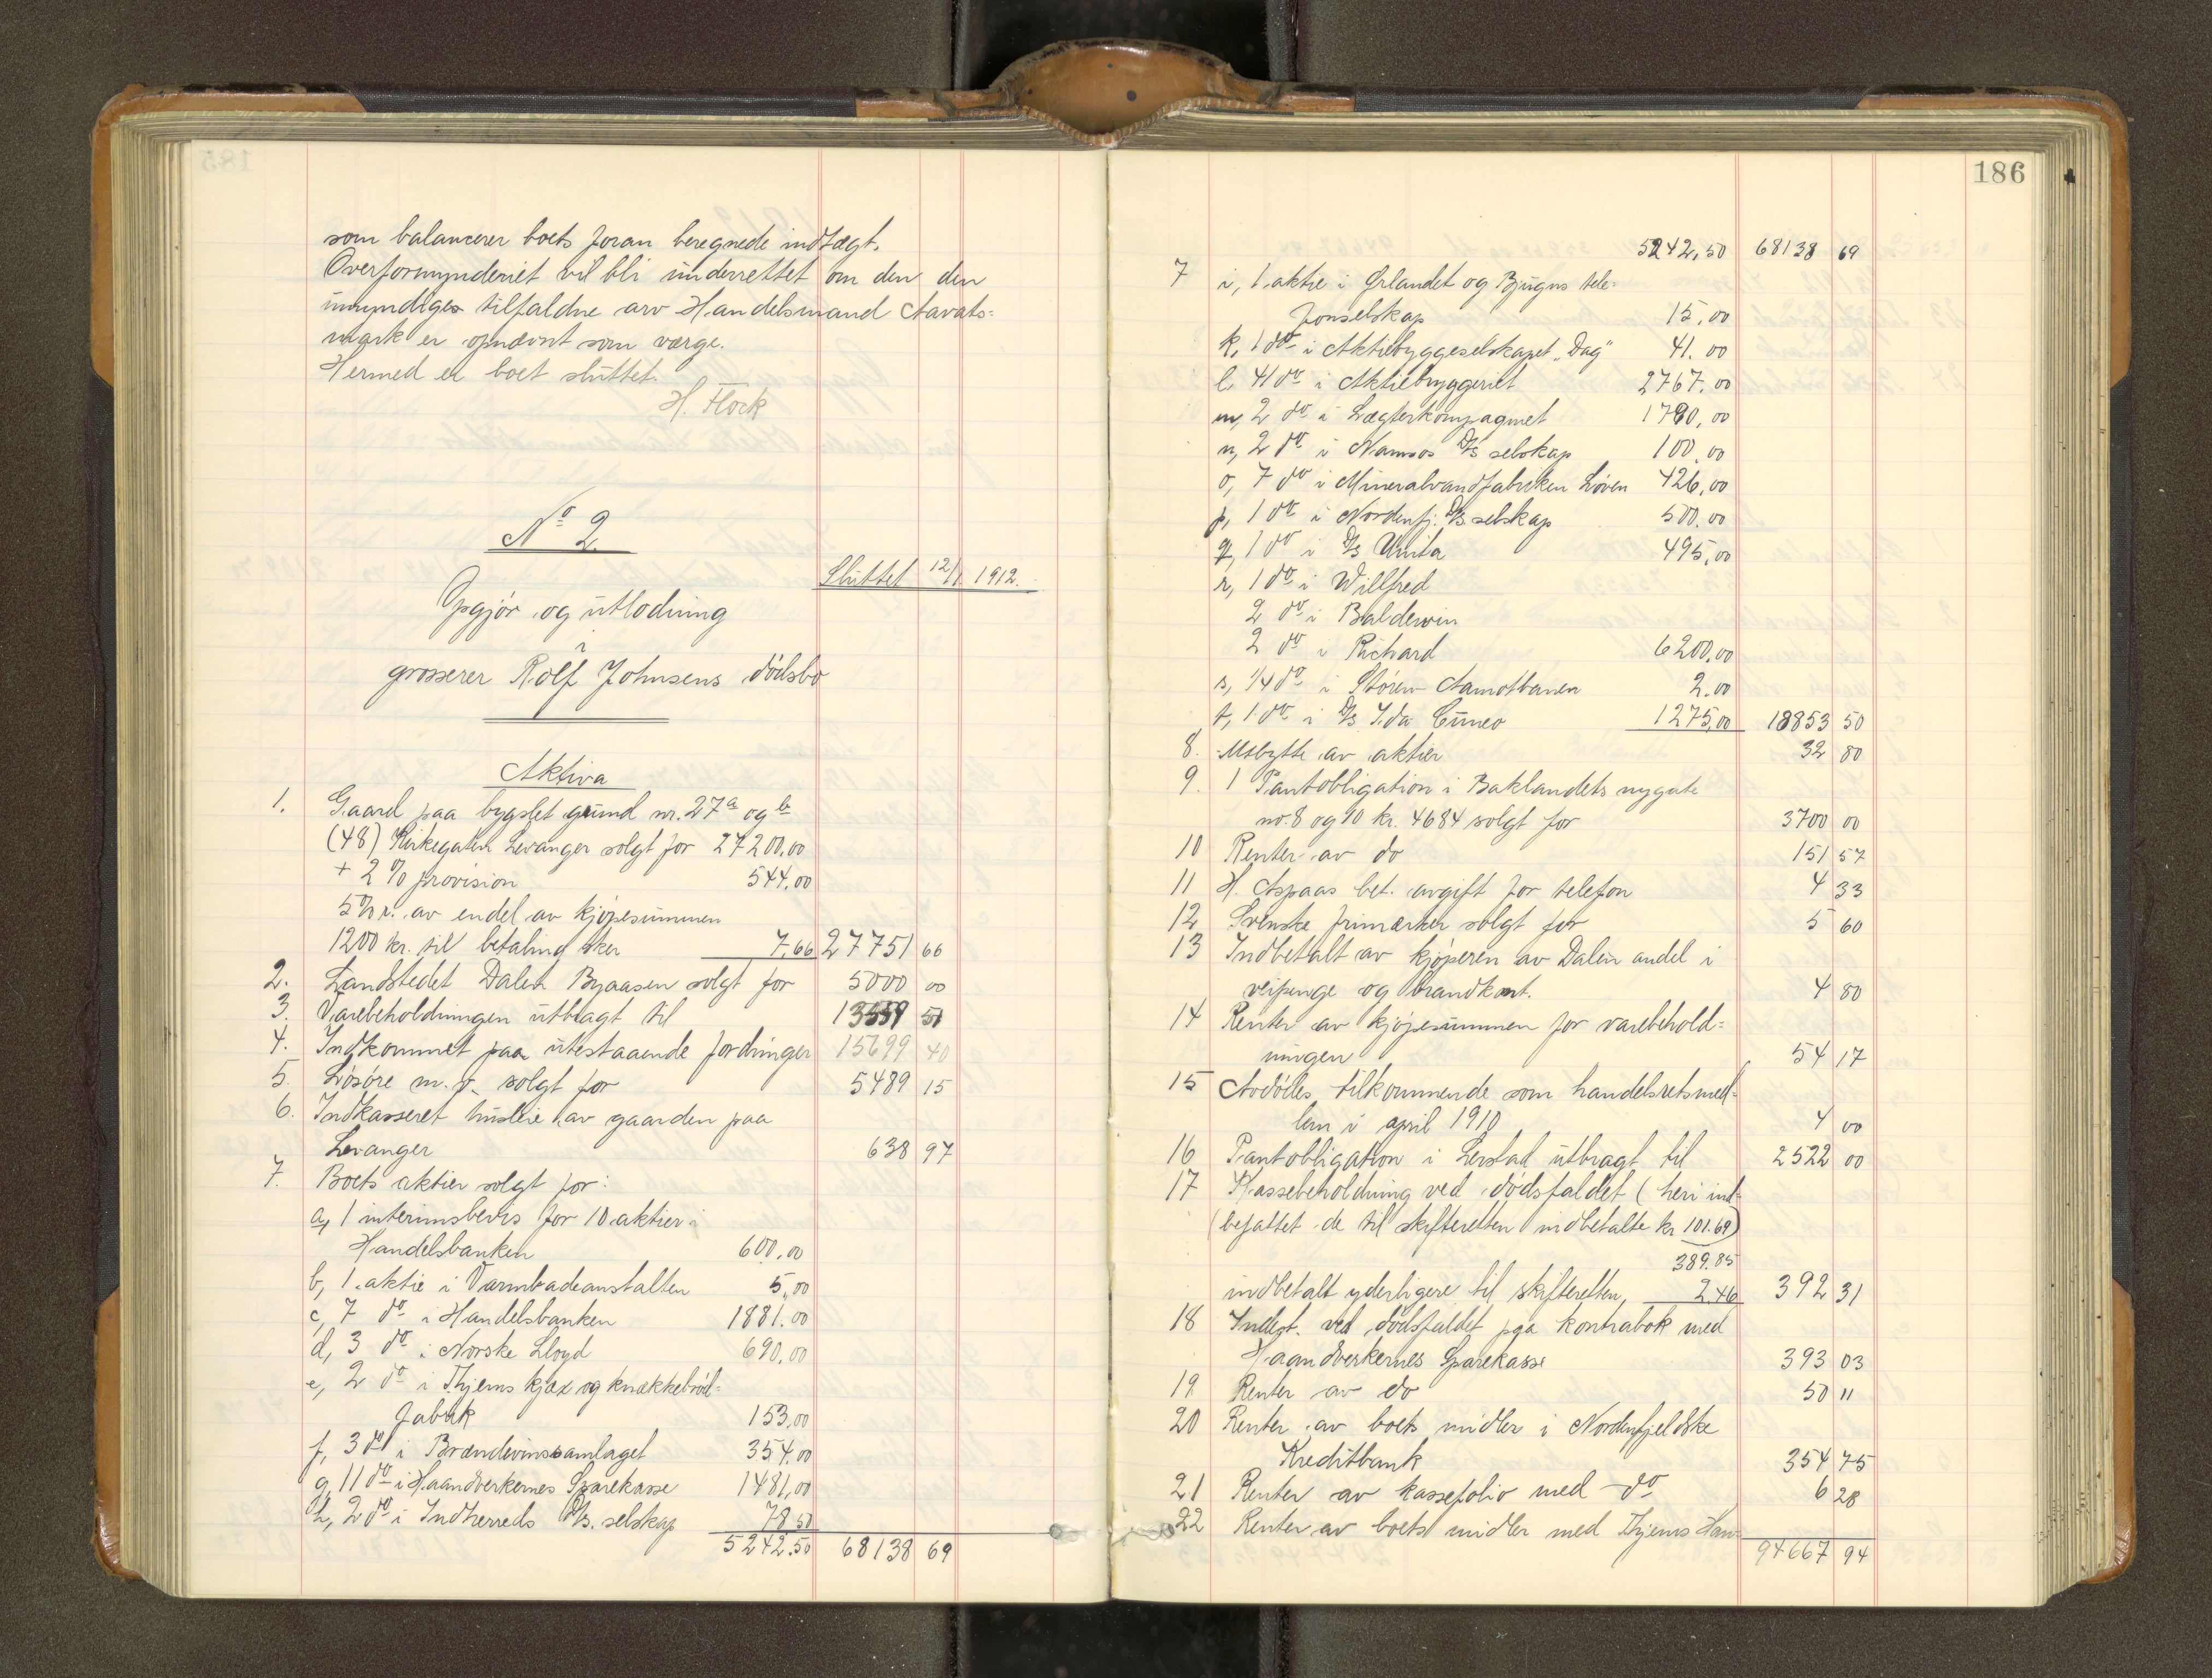 som balancerer boets foran beregnede indtægt.
Overformynderiet vil bli underrettet om den den
umyndiges tilfaldne arv Handelsmand Aavats=
mark er opnævnt som værge.
Hermed er boet sluttet.
H. Flock
No 2.
Sluttet 12/1 1912.
Opgjør og utlodning
i
grosserer Rolf Johnsens dødsbo
Aktiva
1. Gaard paa bygslet grund nr. 27a og b
(48) Kirkegaten Levanger solgt for 27200,00
+ 2 % provision 544,00
5% r. av endel av kjøpesummen
1200 kr. til betaling sker 7,66 27751 66
2. Landstedet Dalen Byaasen solgt for 5000 00
3. Varebeholdningen utbragt til 13559 51
4. Indkommet paa utestaaende fordringer 15699 40
5. Løsøre m. v. solgt for 5489 15
6. Indkasseret husleie av gaarden paa
Levanger 638 97
7. Boets aktier solgt for:
a, 1 interimsbevis for 10 aktier i
Handelsbanken 600,00
b, 1 aktie i Varmbadeanstalten 5,00
c, 7 do i Handelsbanken 1881.00
d, 3 do i Norske Lloyd 690,00
e, 2 do i Thjems kjæx og knækkebrød=
fabrik 153,00
f, 3 do i Brændevinssamlaget 354,00
g, 11 do i Haandverkernes Sparekasse 1481,00
h, 2 do i Indherreds D/s. selskap 78 50
5242.50 68138 69
186
5242,50 68138 69
7 i, 1 aktie i Ørlandet og Bjugns tele=
fonselskap 15,00
k, 1 do i Aktiebyggeselskapet "Dag" 41.00
l. 41 do i Aktiebryggeriet 2767.00
m, 2 do i Lægterkompagniet 1790,00
n, 2 do i Namsos D/s selskap 100.00
o, 7 do i Mineralvandfabriken Løven 426,00
p, 1 do i Nordenfj. D/s selskap 500.00
q, 1 do i D/s Unita 495,00
r, 1 do i Willfred
2 do i Baldewin
2 do i Richard 6200,00
s, 1/4 do i Støren Aamotbanen 2.00
t, 1 do i D/s Ida Cuneo 1275,00 18853 50
8. Utbytte av aktier 32 80
9. 1 Pantobligation i Baklandets nygate
no. 8 og 10 kr. 4684 solgt for 3700 00
10 Renter av do 151 57
11 H. Aspaas bet. avgift for telefon 4 33
12 Svenske frimærker solgt for 5 60
13 Indbetalt av kjøperen av Dalen andel i
veipenge og brandkont. 4 80
14 Renter av kjøpesummen for varebehold=
ningen 54 17
15 Avdødes tilkommende som handelsretsmed=
lem i april 1910 4 00
16 Pantobligation i Lerstad utbragt til 2522 00
17 Kassebeholdning ved dødsfaldet (heri ind=
(befattet de til skifteretten indbetalte kr 101.69)
389.85
indbetalt yderligere til skifteretten, 2.46 392 31
18 Indest. ved dødsfaldet paa kontrabok med
Haandverkernes Sparekasse 393 03
19 Renter av do 50 11
20 Renter av boets midler i Nordenfjeldske
Kreditbank 354 75
21 Renter av kassefolio med do 6 28
22 Renter av boets midler med Thjems Han=
94667 94